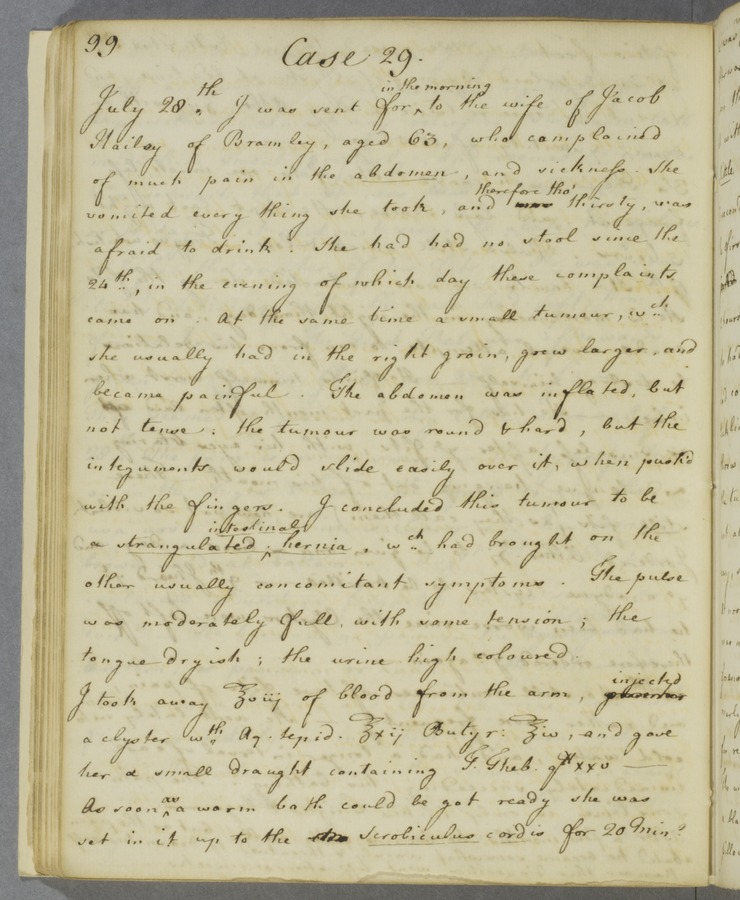 99
Case 29.
in the morning
July 28.th I was sent for ^ to the wife of Jacob
of Bramley, aged 63, who complained
of much pain in the abdomen, and sickness. She
therefore tho'
vomited every thing she took, and thirsty, was
afraid to drink. She had had no stool since the
24th, in the evening of which day these complaints
came on. At the same time a small tumour, wch
she usually had in the right groin, grew larger, and
became painful. The abdomen was inflated, but
not tense: the tumour was round & hard, but the
integuments would slide easily over it, when push'd
with the fingers. I concluded this tumour to be
intestinal
a strangulated ^ hernia, wch had brought on the
other usually concomitant symptoms. The pulse
was moderately full, with some tension; the
tongue dryish; the urine high coloured.
injected
I took away ℥viij of blood from the arm,
a clyster wth Aq. tepid. ℥xij Butyr: ℥iv, and gave
her a small draught containing T. Theb. gtt xxv —
as
As soon ^ a warm bath could be got ready she was
set in it up to the scrobiculus cordis for 20 Mins